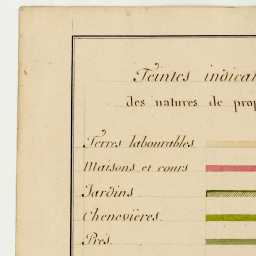 Teintes indica
des natures de prop
Terres labourables
Maisons et cours
Jardins
Chenevières.
Prés